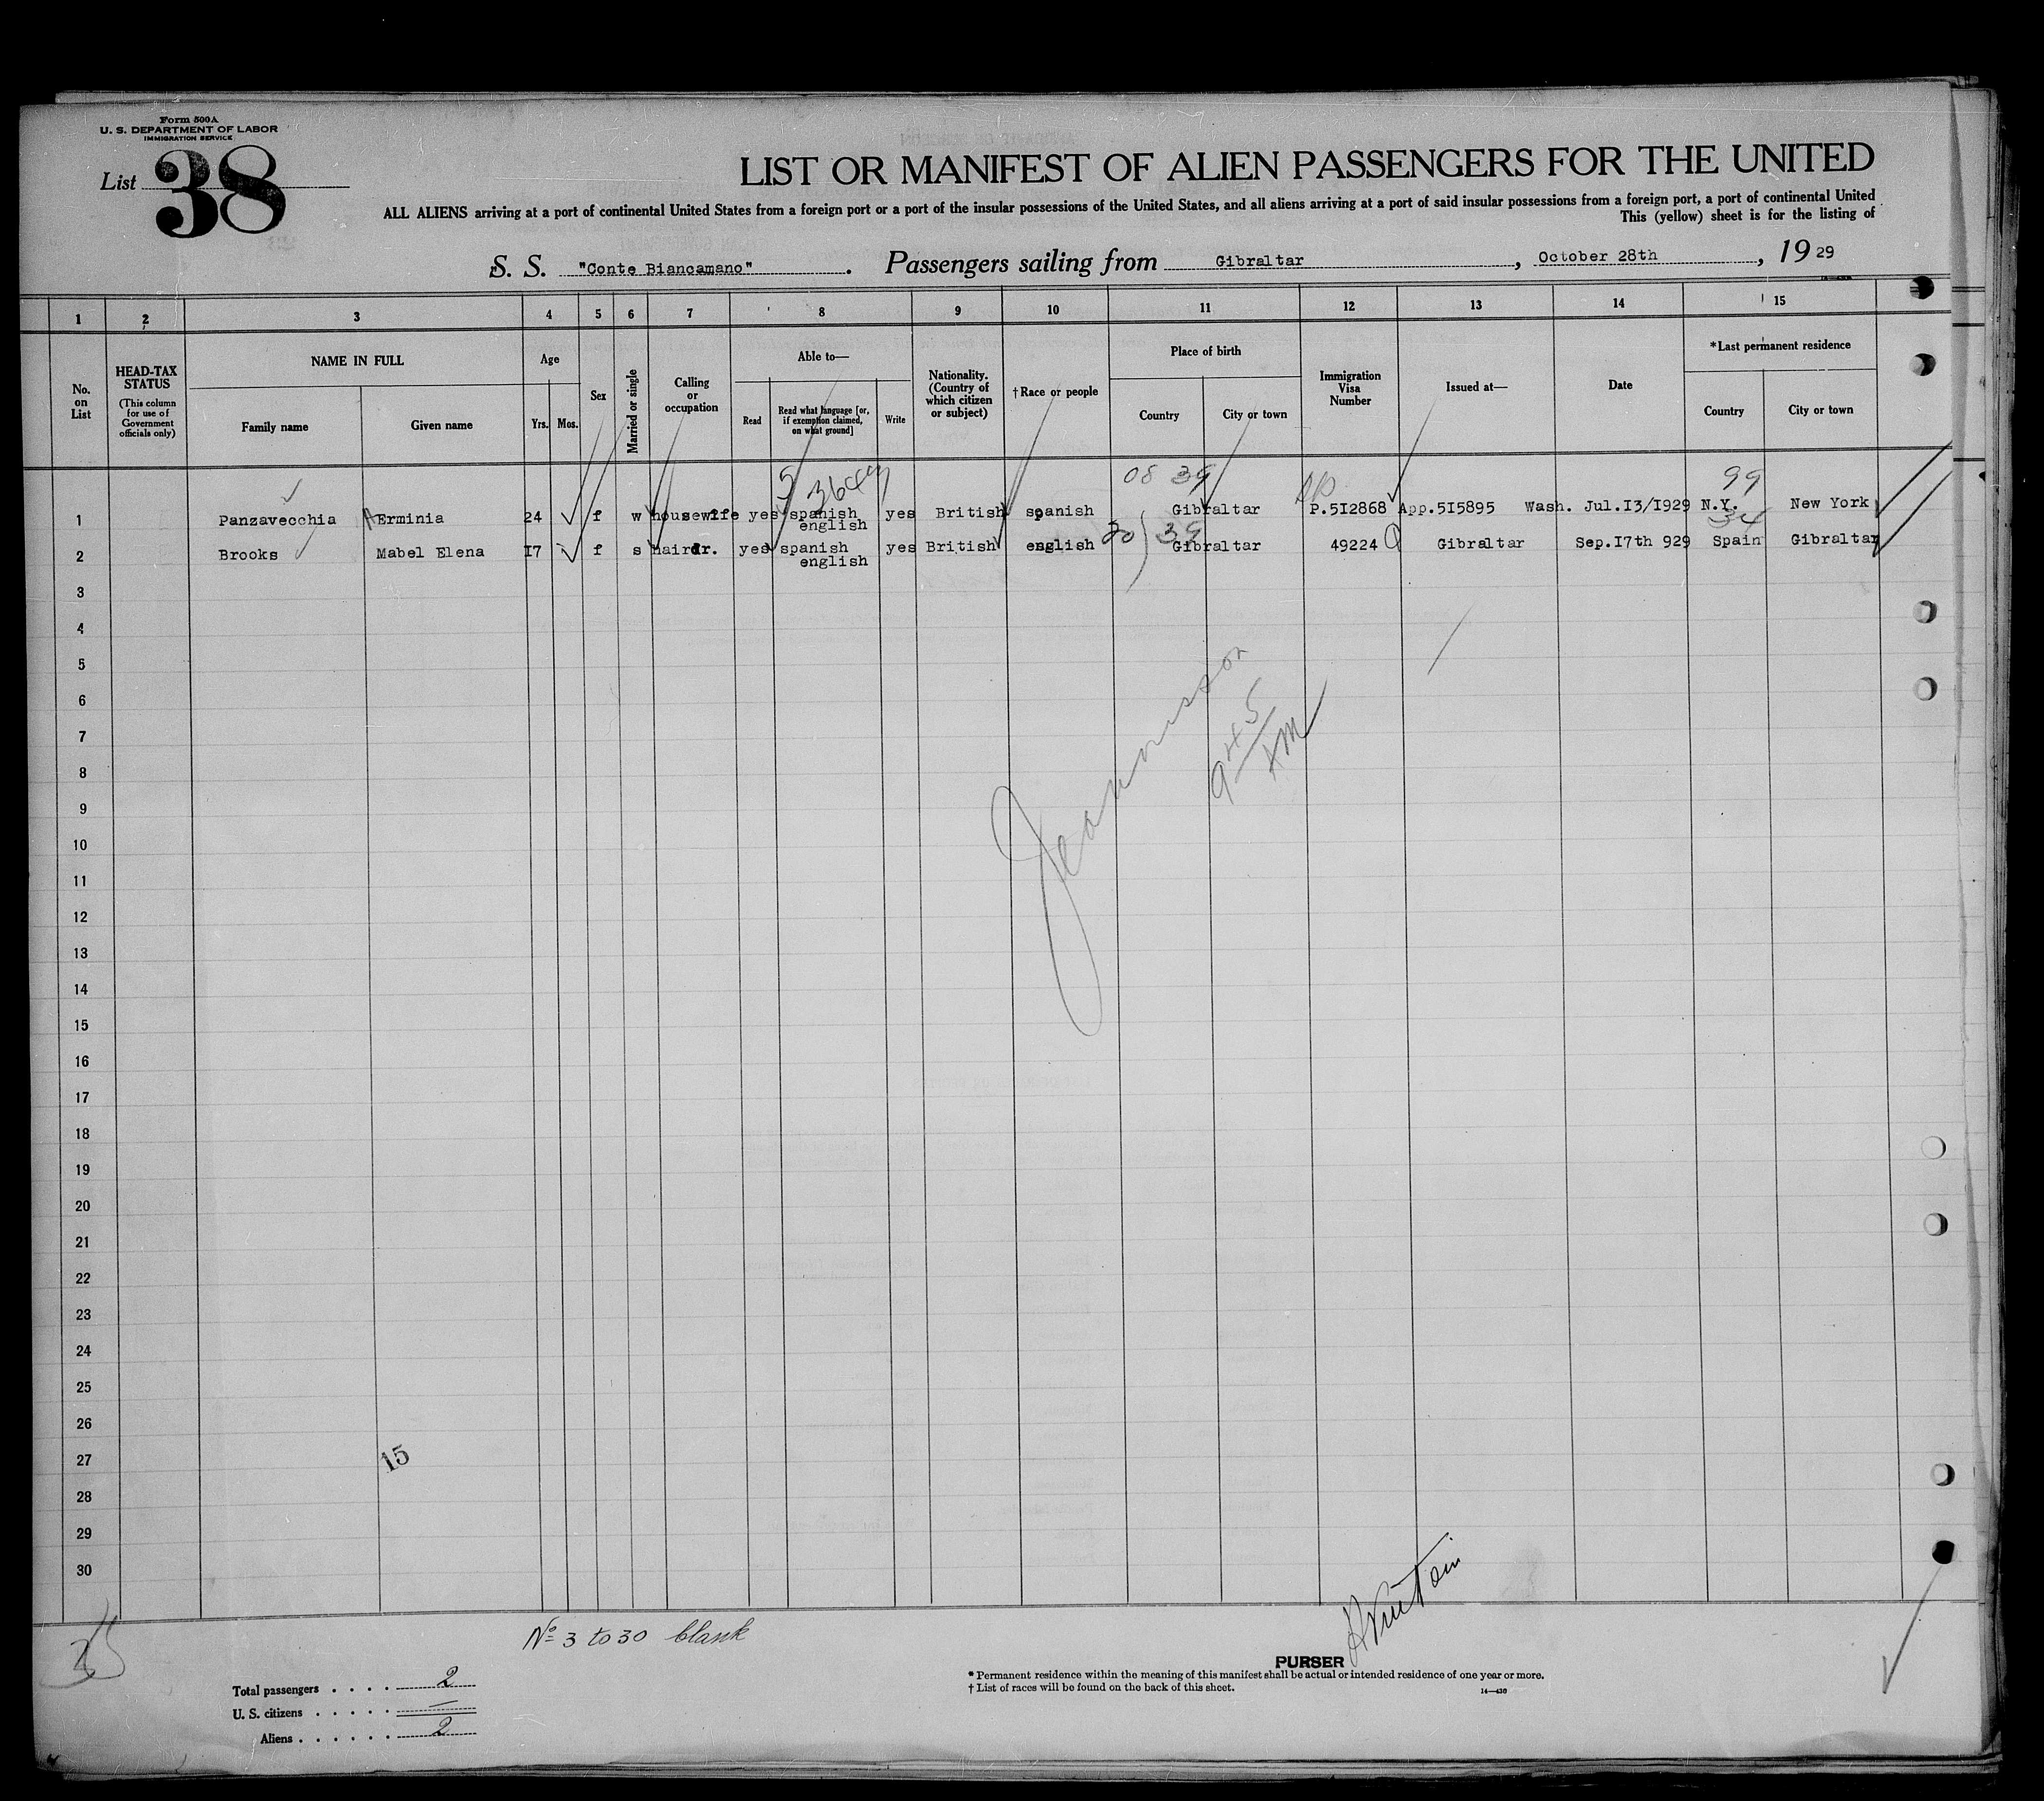 Form 500A
U. S. DEPARTMENT OF LABOR
IMMIGRATION SERVICE
List 38
LIST OR MANIFEST OF ALIEN PASSENGERS FOR THE UNITED
ALL ALIENS arriving at a port of continental United States from a foreign port or a port of the insular possessions of the United States, and all aliens arriving at a port of said insular possessions from a foreign port, a port of continental United
This (yellow) sheet is for the listing of
S. S. "Conte Biancamano". Passengers sailing from Gibraltar, October 28th, 19 29
1 2 3 4 5 6 7 8 9 10 11 12 13 14 15
No. on List
HEAD-TAX STATUS
(This column for use of Government officials only)
NAME IN FULL
Family name
Given name
Age
Yrs.
Mos.
Sex
Married or single
Calling or occupation
Able to—
Read
Read what language [or, if exemption claimed, on what ground]
Write
Nationality. (Country of which citizen or subject)
†Race or people
Place of birth
Country
City or town
Immigration Visa Number
Issued at—
Date
*Last permanent residence
Country
City or town
08 39 99
1 Panzavecchia Erminia 24 f w housewife yes spanish yes British spanish Gibraltar P.5I2868 App.5I5895 Wash. Jul.I3/I929 N.Y. New York
english
20 39 34
2 Brooks Mabel Elena I7 f s hairdr. yes spanish yes British english Gibraltar 49224 Gibraltar Sep.I7th 929 Spain Gibraltar
english
3
4
5
6
7
8
9
10
11
12
13
14
15
16
17
18
19
20
21
22
23
24
25
26
27
28
29
30
9 45 AM
15
Nº 3 to 30 blank
PURSER
Total passengers . . . . 2
U. S. citizens . . . . . —
Aliens . . . . . . 2
* Permanent residence within the meaning of this manifest shall be actual or intended residence of one year or more.
† List of races will be found on the back of this sheet.
14—430